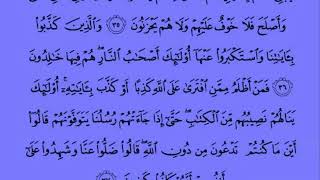 وَأَصْلَحَ فَلَا خَوْفٌ عَلَيْهِمْ وَلَا هُمْ يَحْزَنُونَ ٣٥ وَالَّذِينَ كَذَّبُوا
بِـَٔايَٰتِنَا وَاسْتَكْبَرُوا عَنْهَا أُولَٰٓئِكَ أَصْحَٰبُ النَّارِ هُمْ فِيهَا خَٰلِدُونَ
٣٦ فَمَنْ أَظْلَمُ مِمَّنِ افْتَرَىٰ عَلَى اللَّهِ كَذِبًا أَوْ كَذَّبَ بِـَٔايَٰتِهِ أُولَٰٓئِكَ
يَنَالُهُمْ نَصِيبُهُم مِّنَ الْكِتَٰبِ حَتَّىٰٓ إِذَا جَآءَتْهُمْ رُسُلُنَا يَتَوَفَّوْنَهُمْ قَالُوٓا
أَيْنَ مَا كُنتُمْ تَدْعُونَ مِن دُونِ اللَّهِ قَالُوا ضَلُّوا عَنَّا وَشَهِدُوا عَلَىٰٓ